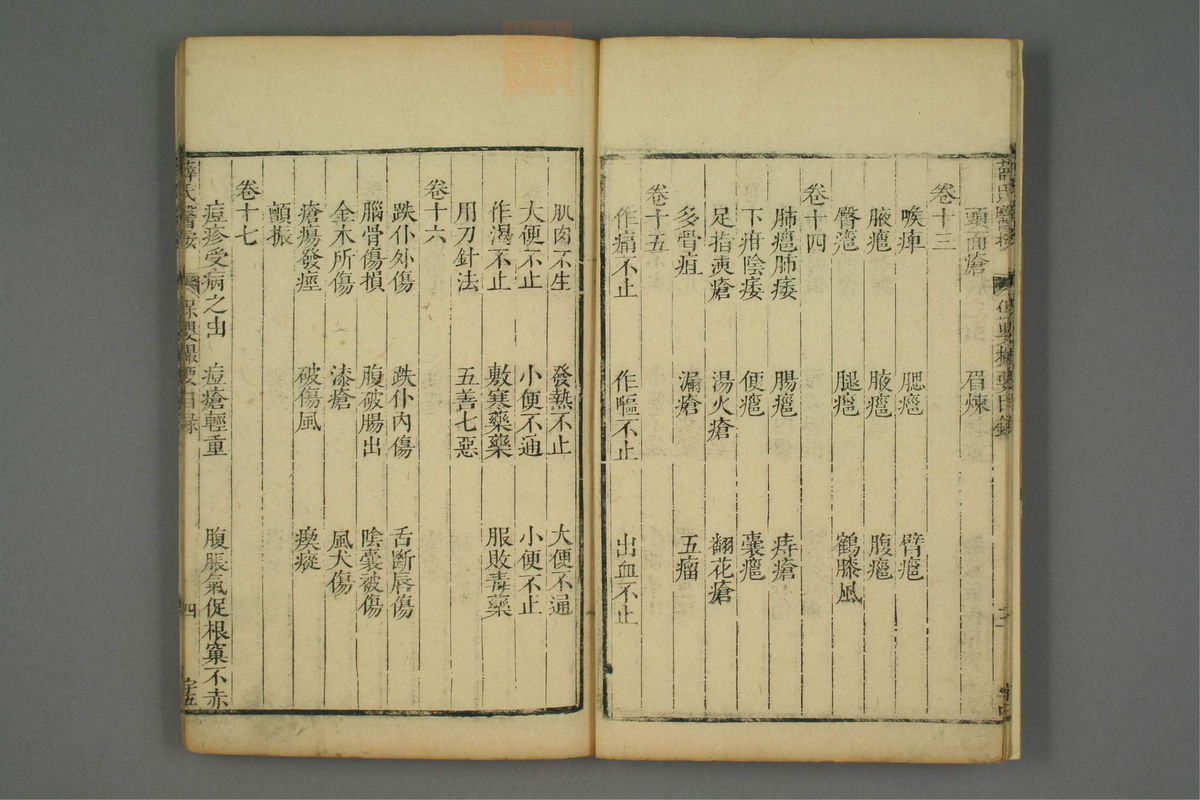 頭面瘡 眉煉
卷十三
喉痺 腮癰 臂癰
腋癰 腋癰 腹癰
臀癰 腿癰 鶴膝風
卷十四
肺癰肺痿 腸癰 痔瘡
下疳陰痿 便癰 囊癰
足指凍瘡 湯火瘡 翻花瘡
多骨疽 漏瘡 五瘤
卷十五
作痛不止 作嘔不止 出血不止
肌肉不生 發熱不止 大便不通
大便不止 小便不通 小便不止
作渴不止 敷寒藥藥 服敗毒藥
用刀針法 五善七惡
卷十六
跌仆外傷 跌仆內傷 舌斷唇傷
腦骨傷損 腹破腸出 陰囊被傷
金木所傷 漆瘡 風犬傷
瘡瘍發痙 破傷風 瘈瘲
顫振
卷十七
痘疹受病之由 痘瘡輕重 腹脹氣促根窠不赤
薛氏醫按 保嬰撮要目錄 四